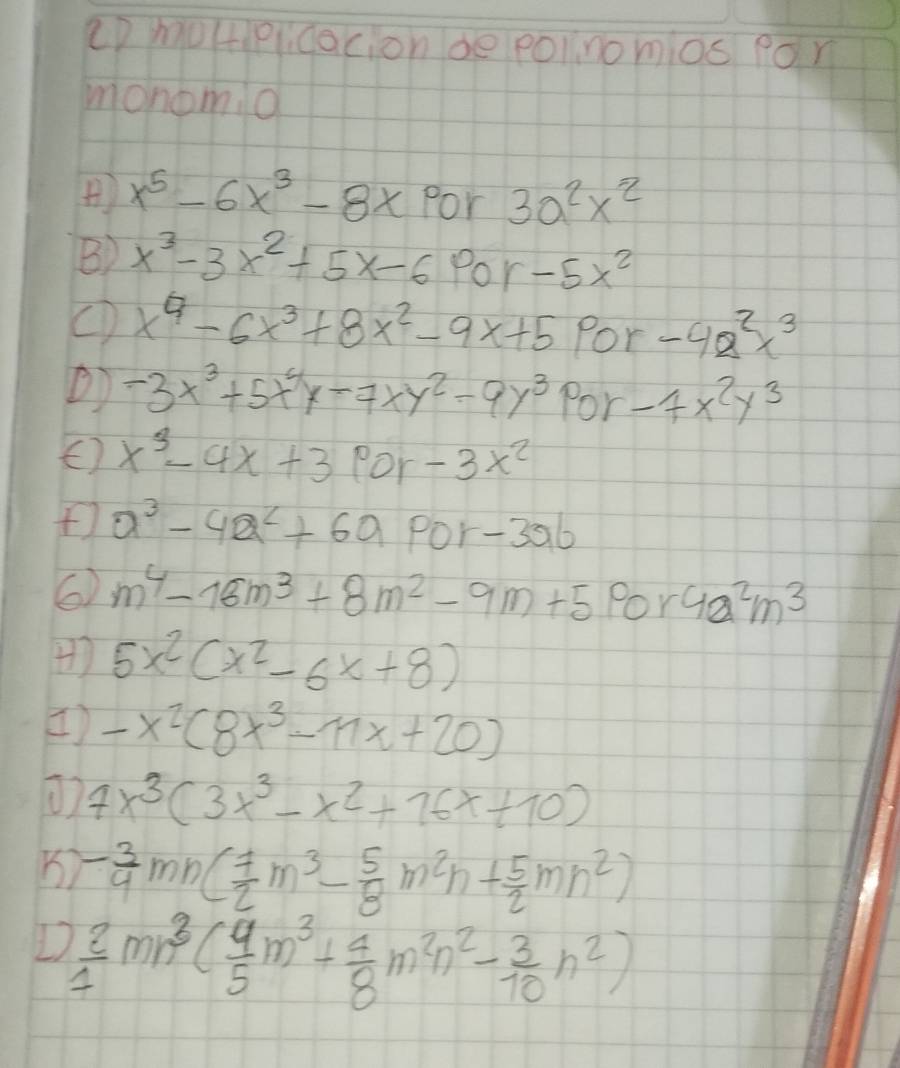 2) multiplicacion de polinomios por
monomio
A) x⁵ - 6x³ - 8x por 3a²x²
B) x³ - 3x² + 5x - 6 por - 5x²
C) x⁴ - 6x³ + 8x² - 9x + 5 por - 4a²x³
D) -3x³ + 5x²y - 7xy² - 9y³ por - 7x²y³
E) x³ - 4x + 3 por - 3x²
F) a³ - 4a² + 6a por - 3ab
G) m⁴ - 15m³ + 8m² - 9m + 5 por 4a²m³
H) 5x²(x² - 6x + 8)
I) -x²(8x³ - 11x + 20)
J) 7x³(3x³ - x² + 16x + 10)
K) -3/4 mn(7/2 m³ - 5/8 m²n + 5/2 mn²)
L) 2/7 mn³(4/5 m³ + 7/8 m²n² - 3/10 n²)